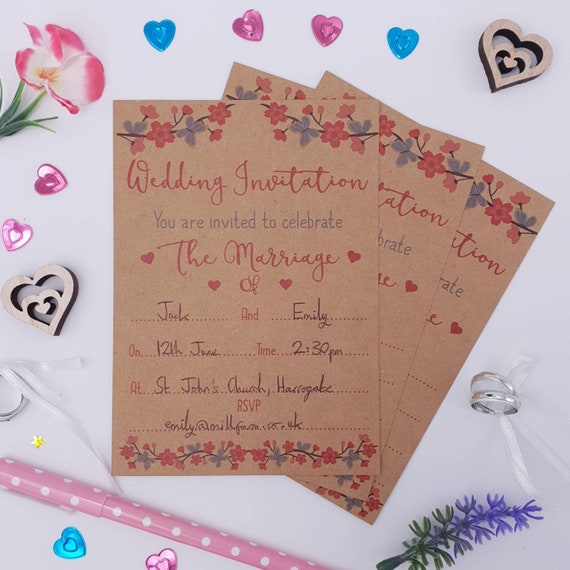 Wedding Invitation
You are invited to celebrate
The Marriage
Of
Jack And Emily
On 12th June Time 2:30pm
At St John's Church, Harrogate
RSVP
emily@millfarm.co.uk
itation
brate
ge
itation
ebrate
e